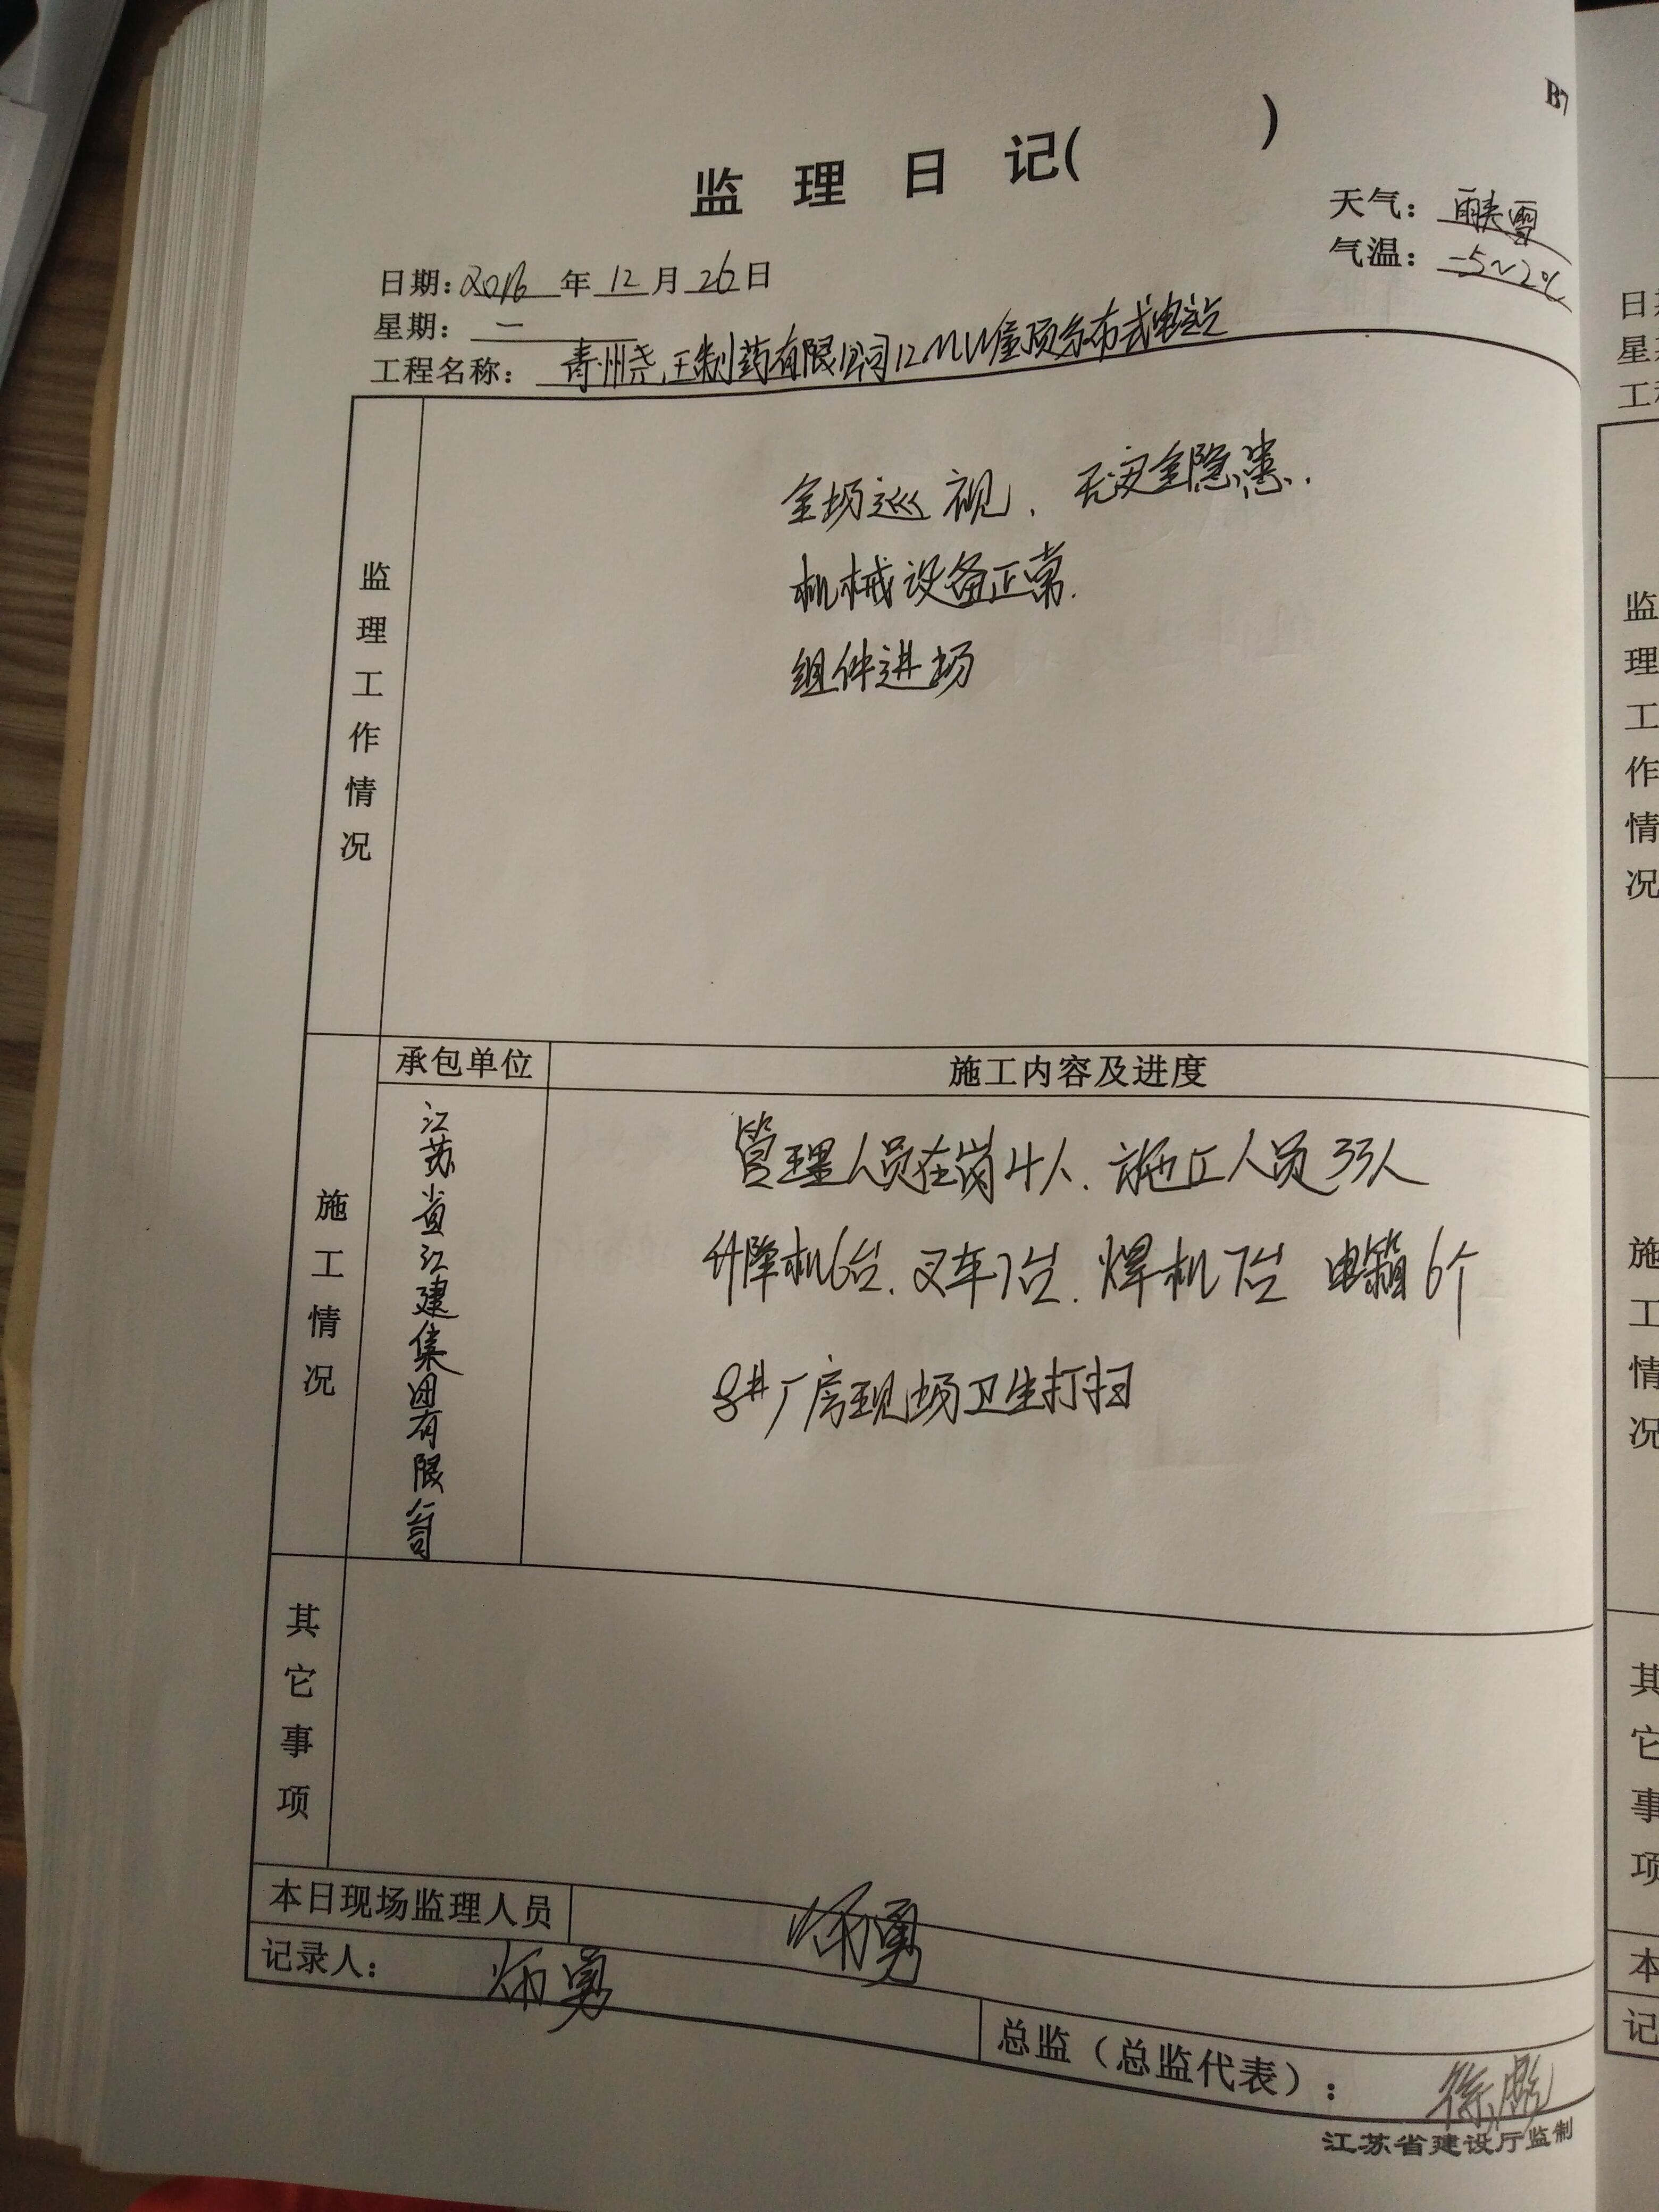 B7
监 理 日 记( )
天气: 雨夹雪
气温: -5~2℃
日期: 2016 年 12 月 26 日
星期: 一
工程名称: 青州尧王制药有限公司12MW屋顶分布式电站
监理工作情况
全场巡视、无安全隐患.
机械设备正常.
组件进场
施工情况
承包单位
施工内容及进度
江苏省江建集团有限公司
管理人员在岗4人、施工人员33人
升降机6台、叉车1台、焊机7台 电箱6个
8#厂房现场卫生打扫
其它事项
本日现场监理人员
记录人:
总监(总监代表):
江苏省建设厅监制
日
星
工
监理工作情况
施工情况
其它事项
本
记